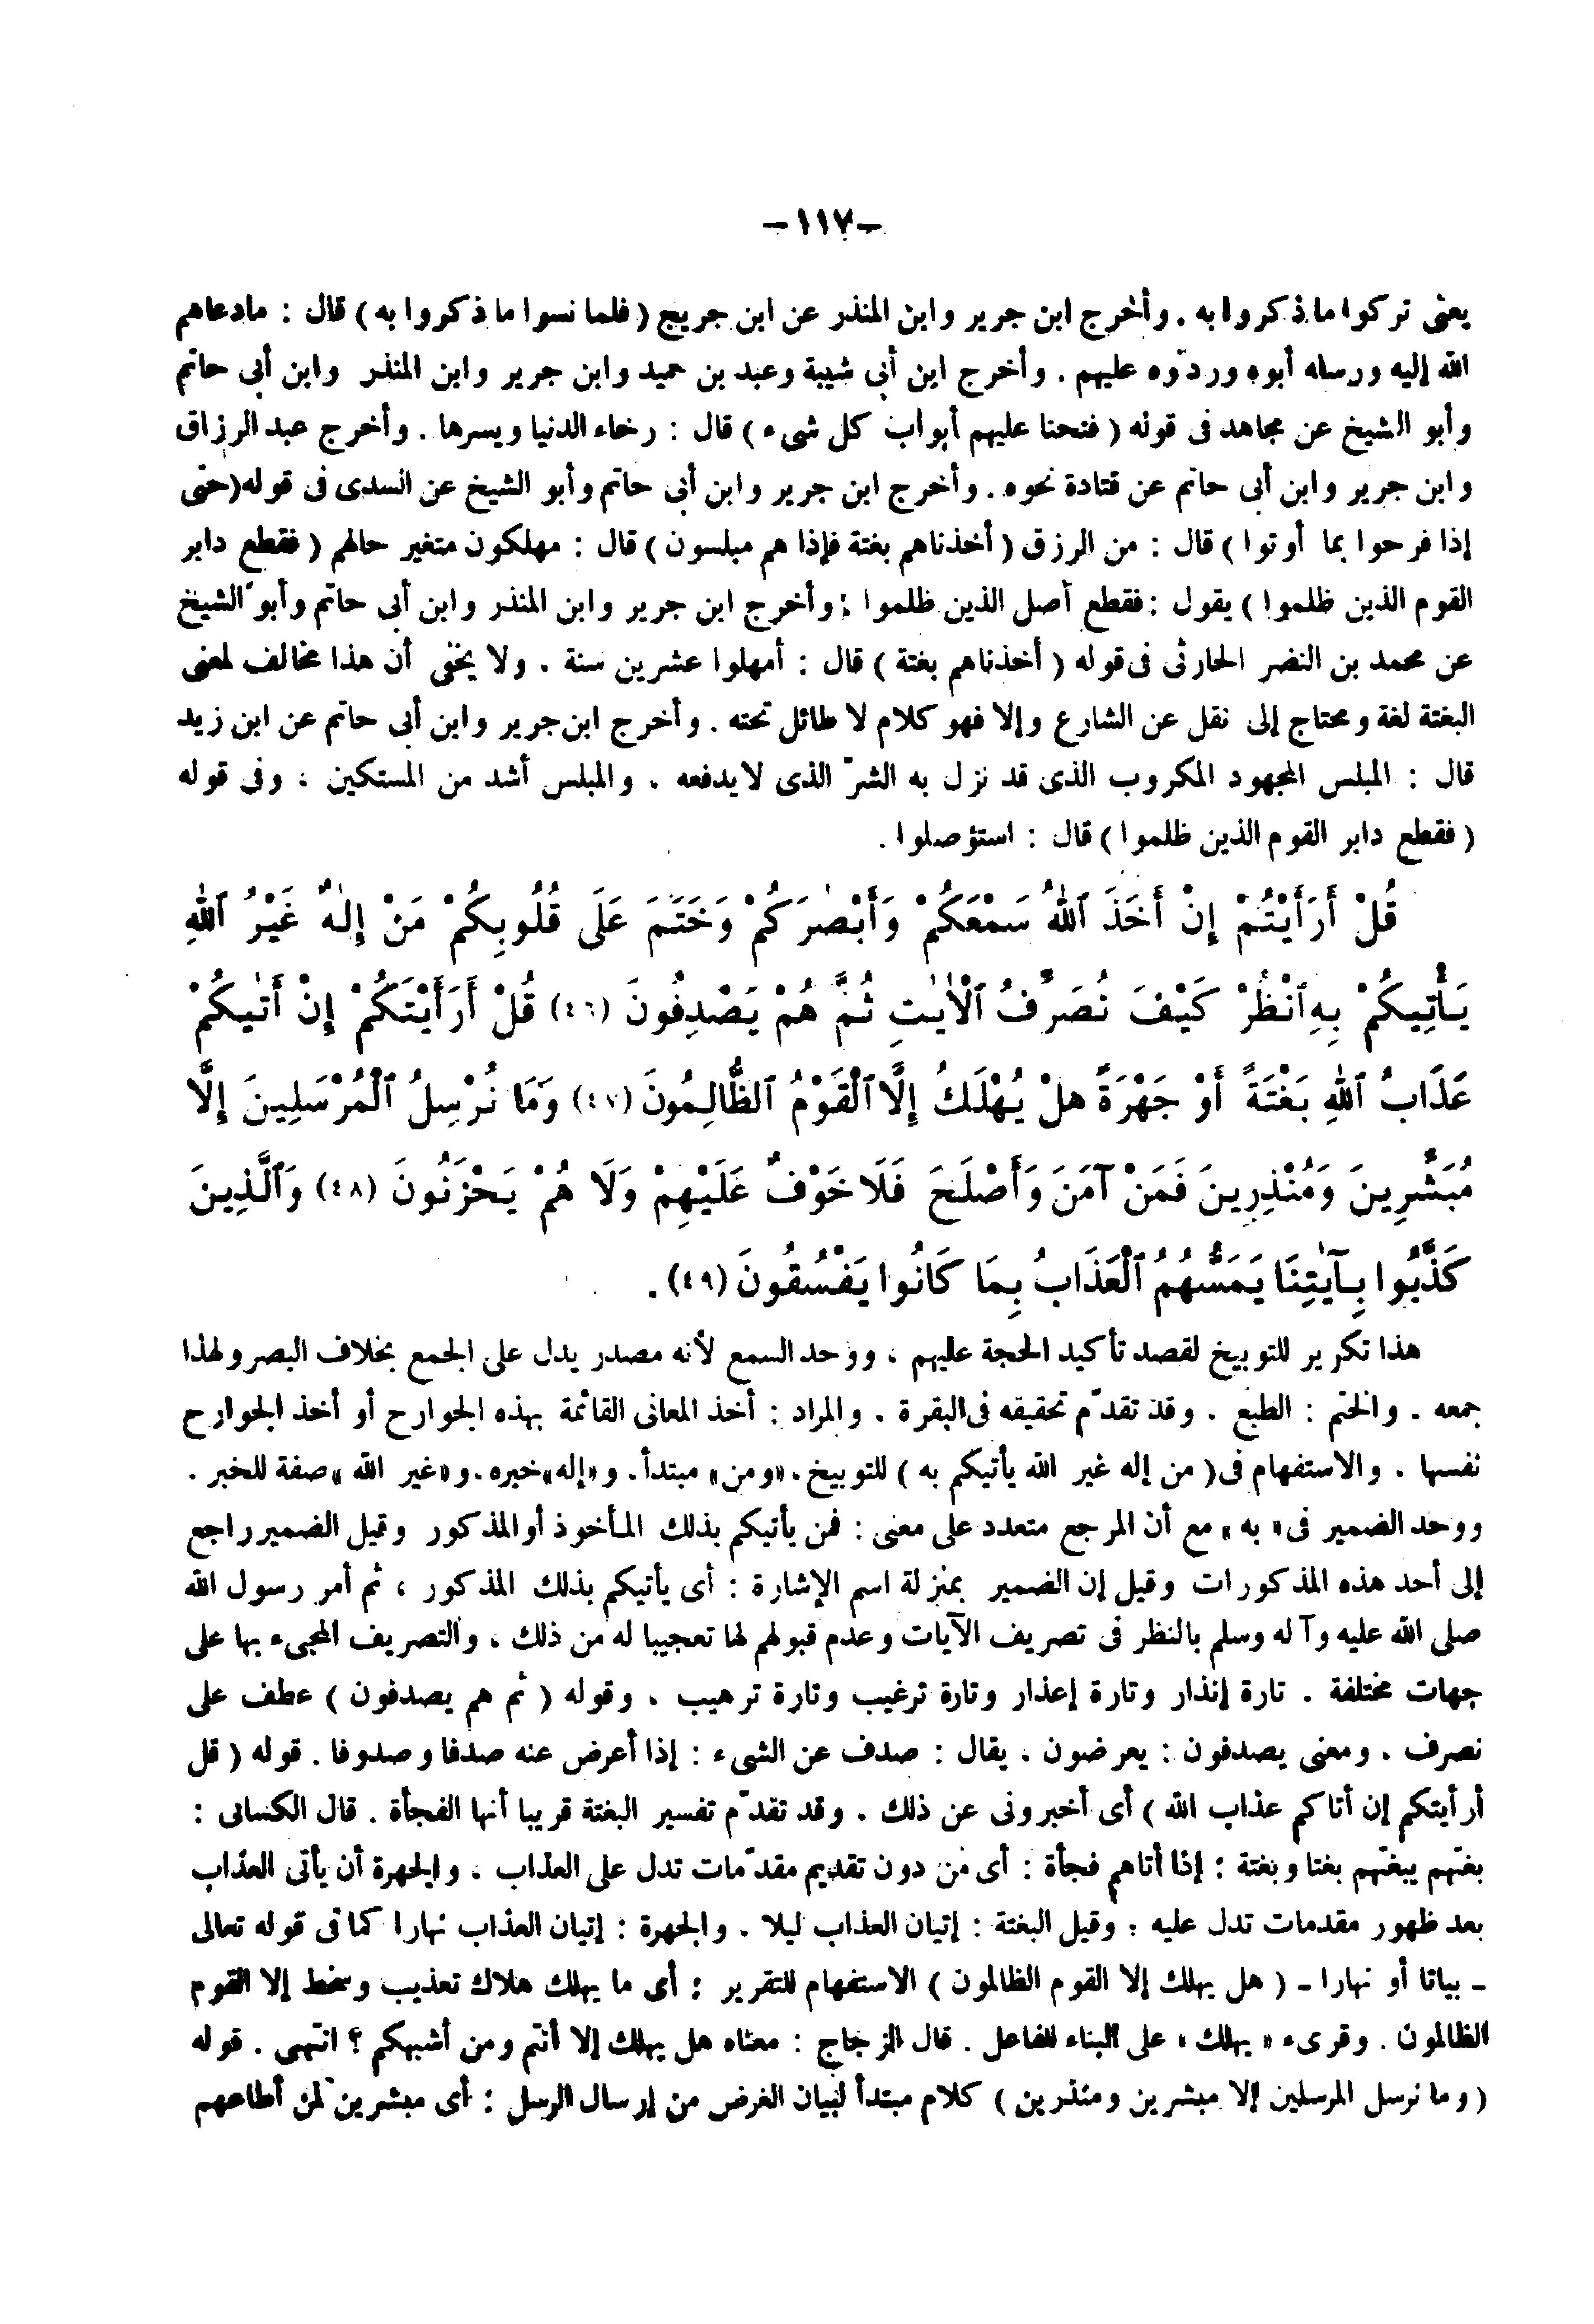 -١١٧-
يعنى تركوا ما ذكروا به . وأخرج ابن جرير وابن المنذر عن ابن جريج ( فلما نسوا ما ذكروا به ) قال : مادعاهم
الله إليه ورسله أبوه وردّوه عليهم . وأخرج ابن أبى شيبة وعبد بن حميد وابن جرير وابن المنذر وابن أبى حاتم
وأبو الشيخ عن مجاهد فى قوله ( فتحنا عليهم أبواب كل شىء ) قال : رخاء الدنيا ويسرها . وأخرج عبد الرزاق
وابن جرير وابن أبى حاتم عن قتادة نحوه . وأخرج ابن جرير وابن أبى حاتم وأبو الشيخ عن السدى فى قوله (حتى
إذا فرحوا بما أوتوا ) قال : من الرزق ( أخذناهم بغتة فإذا هم مبلسون ) قال : مهلكون متغير حالهم ( فقطع دابر
القوم الذين ظلموا ) يقول : فقطع أصل الذين ظلموا ; وأخرج ابن جرير وابن المنذر وابن أبى حاتم وأبو الشيخ
عن محمد بن النضر الحارثى فى قوله ( أخذناهم بغتة ) قال : أمهلوا عشرين سنة . ولا يخفى أن هذا مخالف لمعنى
البغتة لغة ومحتاج إلى نقل عن الشارع وإلا فهو كلام لا طائل تحته . وأخرج ابن جرير وابن أبى حاتم عن ابن زيد
قال : المبلس المجهود المكروب الذى قد نزل به الشرّ الذى لا يدفعه ، والمبلس أشد من المستكين ، وفى قوله
( فقطع دابر القوم الذين ظلموا ) قال : استؤصلوا .
قُلْ أَرَأَيْتُمْ إِنْ أَخَذَ ٱللهُ سَمْعَكُمْ وَأَبْصٰرَكُمْ وَخَتَمَ عَلَى قُلُوبِكُمْ مَنْ إِلٰهٌ غَيْرُ ٱللهِ
يَأْتِيكُمْ بِهِ ٱنْظُرْ كَيْفَ نُصَرِّفُ ٱلْأٰيٰتِ ثُمَّ هُمْ يَصْدِفُونَ (٤٦) قُلْ أَرَأَيْتَكُمْ إِنْ أَتٰيكُمْ
عَذَابُ ٱللهِ بَغْتَةً أَوْ جَهْرَةً هلْ يُهْلَكُ إِلَّا ٱلْقَوْمُ ٱلظَّالِمُونَ (٤٧) وَمَا نُرْسِلُ ٱلْمُرْسَلِينَ إِلَّا
مُبَشِّرِينَ وَمُنْذِرِينَ فَمَنْ آمَنَ وَأَصْلَحَ فَلَا خَوْفٌ عَلَيْهِمْ وَلَا هُمْ يَحْزَنُونَ (٤٨) وَٱلَّذِينَ
كَذَّبُوا بِآيٰتِنَا يَمَسُّهُمُ ٱلْعَذَابُ بِمَا كَانُوا يَفْسُقُونَ (٤٩) .
هذا تكرير للتوبيخ لقصد تأكيد الحجة عليهم ، ووحد السمع لأنه مصدر يدل على الجمع بخلاف البصر ولهذا
جمعه . والختم : الطبع . وقد تقدّم تحقيقه فى البقرة . والمراد : أخذ المعانى القائمة بهذه الجوارح أو أخذ الجوارح
نفسها . والاستفهام فى ( من إله غير الله يأتيكم به ) للتوبيخ . «ومن» مبتدأ . و «إله» خبره . و«غير الله » صفة للخبر .
ووحد الضمير فى « به » مع أن المرجع متعدد على معنى : فمن يأتيكم بذلك المأخوذ أو المذكور وقيل الضمير راجع
إلى أحد هذه المذكورات وقيل إن الضمير بمنزلة اسم الإشارة : أى يأتيكم بذلك المذكور ، ثم أمر رسول الله
صلى الله عليه وآله وسلم بالنظر فى تصريف الآيات وعدم قبولهم لها تعجيبا له من ذلك ، والتصريف المجىء بها على
جهات مختلفة . تارة إنذار وتارة إعذار وتارة ترغيب وتارة ترهيب ، وقوله ( ثم هم يصدفون ) عطف على
نصرف . ومعنى يصدفون : يعرضون . يقال : صدف عن الشىء : إذا أعرض عنه صدفا وصدوفا . قوله ( قل
أرأيتكم إن أتاكم عذاب الله ) أى أخبرونى عن ذلك . وقد تقدّم تفسير البغتة قريبا أنها الفجأة . قال الكسائى :
بغتهم يبغتهم بغتا وبغتة : إذا أتاهم فجأة : أى من دون تقديم مقدّمات تدل على العذاب . والجهرة أن يأتى العذاب
بعد ظهور مقدمات تدل عليه : وقيل البغتة : إتيان العذاب ليلا . والجهرة : إتيان العذاب نهارا كما فى قوله تعالى
- بياتا أو نهارا - ( هل يهلك إلا القوم الظالمون ) الاستفهام للتقرير : أى ما يهلك هلاك تعذيب وسخط إلا القوم
الظالمون . وقرىء « يهلك » على البناء للفاعل . قال الزجاج : معناه هل يهلك إلا أنتم ومن أشبهكم ؟ انتهى . قوله
( وما نرسل المرسلين إلا مبشرين ومنذرين ) كلام مبتدأ لبيان الغرض من إرسال الرسل : أى مبشرين لمن أطاعهم